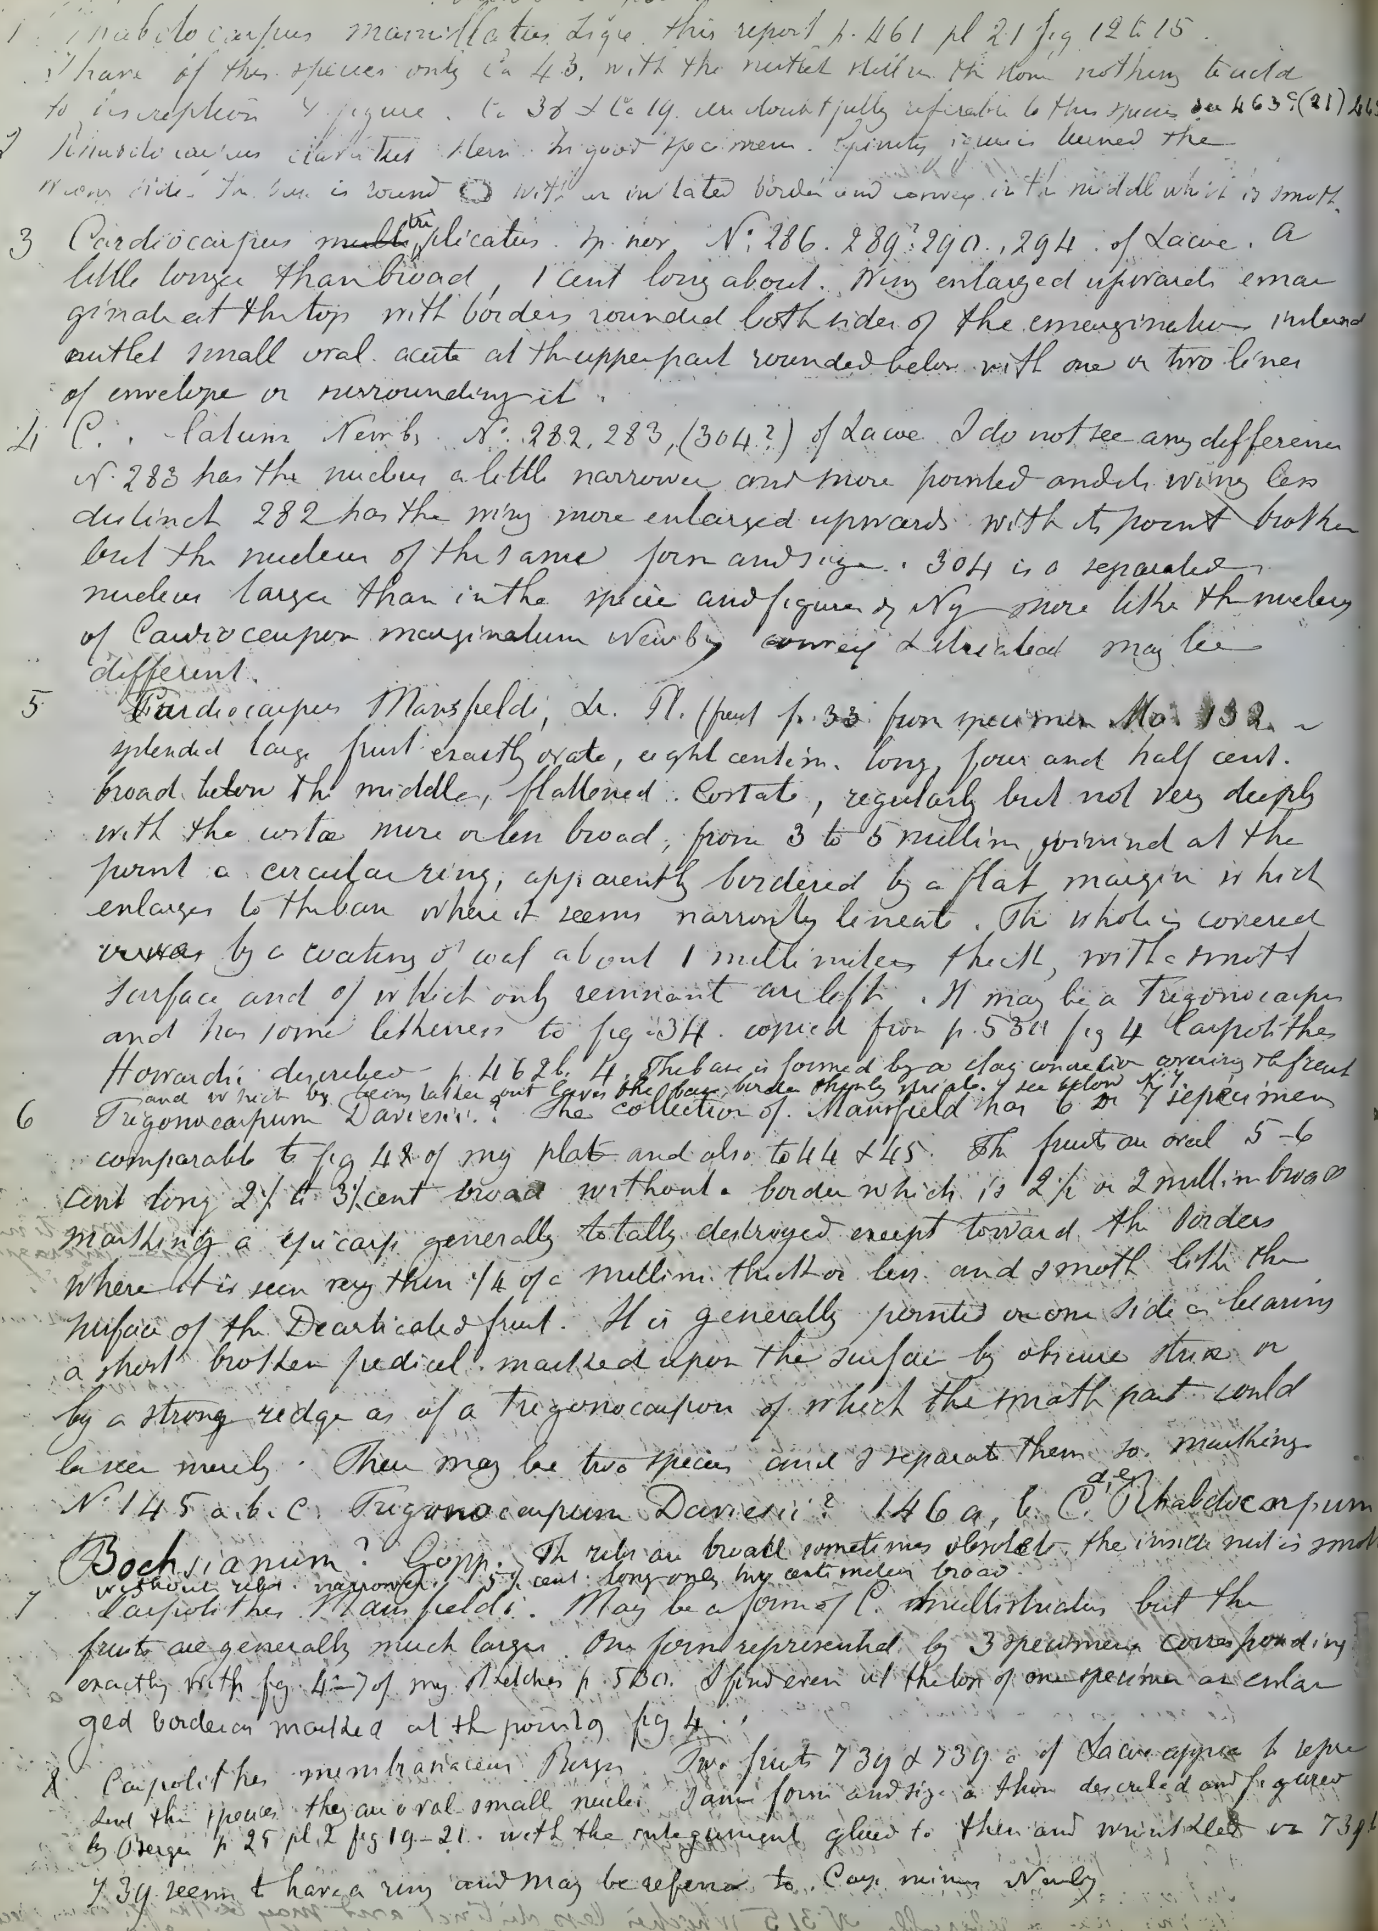 1 Rhabdocarpus mamillatus Lsqx. this report p. 461 pl 21 fig 12 to 15.
I have of this species only Ca 43. with the nutlet still in the stone nothing to add
to description & figure. Ca 38 & Ca 19. are doubtfully referable to this species see 463 c. (21)
2 Rhabdocarpus clavatus Stern. In good specimen. figure is turned the
wrong side. The base is round with an inflated border and convex in the middle which is smoth.
3 Cardiocarpus multi tri plicatus. sp. nov. No. 286. 289? 290., 294. of Lacoe. A
little longer than broad, 1 cent long about. Wing enlarged upwards emar
ginate at the top with borders rounded both sides of the emargination
nutlet small oval. acute at the upper part rounded below with one or two lines
of envelope or surrounding it.
4 C. latum Newb. No. 282, 283, (304?) of Lacoe I do not see any difference
N. 283 has the nucleus a little narrower and more pointed and its wing less
distinct 282 has the wing more enlarged upwards with its point broken
but the nucleus of the same form and size. 304 is a separated
nucleus larger than in the specie and figure of Ny more like the nucleus
of Cardiocarpon marginatum Newby convex & striated may be
different.
5 Cardiocarpus Mansfieldi, Lx. Pl. (fruit p. 33 from specimen No 132.
splended large fruit exactly ovate, eight centim. long, four and half cent.
broad below the middle, flattened. Costate, regularly but not very deeply
with the costæ more or less broad, from 3 to 5 millim joinind at the
point a circular ring, apparently bordered by a flat margin which
enlarges to the base where it seems narrowly lineate. The whole is covered
by a coating of coal about 1 millimeters thick, with a smott
surface and of which only remnant are left. It may be a Trigonocarpus
and has some likeness to fig 34. copied from p. 530 fig 4 Carpolithes
Howardi described p. 462 b. 4. The base is formed by a clay concretion covering the fruit
and which by being taken out leaves the base border thinly striate. see below No 7
6 Trigonocarpum Daviesii? The collection of Mansfield has 6 or 7 sepecimens
comparable to fig 48 of my plate and also to 44 & 45. The fruits are oval 5-6
cent long 2½ to 3½ cent broad without border which is 2½ or 2 millim broad
marking a epicarp generally totally destroyed except toward the borders
where it is seen very thin ¼ of a millim. thick or less. and smoth like the
surface of the Decorticated fruit. It is generally pointed on one side as bearing
a short broken pedicel. marked upon the surface by obscure striæ or
by a strong ridge as of a Trigonocarpon of which the smoth part could
be seen merely. There may be two species and I separate them so. marking
No. 145 a. b. c. Trigonocarpum Daviesii? 146 a, b. C. d, e, Rhabdocarpum
Bochsianum? Gopp. The ribs are broad sometimes obsolete. the inside nut is smoth
without ribs. narrower. 5½ cent. long only two centimeters broad.
7 Carpolithes Mansfieldi. May be a form of C. multistriatus but the
fruits are generally much larger. One form represented by 3 specimens corresponding
exactly with fig. 4-7 of my sketches p. 530. I find even at the top of one specimen an enlar
ged border as marked at the point of fig 4.
8 Carpolithes membranaceus Berger. Two fruits 739 & 739 a of Lacoe appear to repre
sent this species they are oval small nuclei same form and size as those described and figured
by Berger p 25 pl. 2 fig 19-21. with the integument glued to them and wrinkled in 739 b
739 seems to have a ring and may be referred to Carp. minus Newby